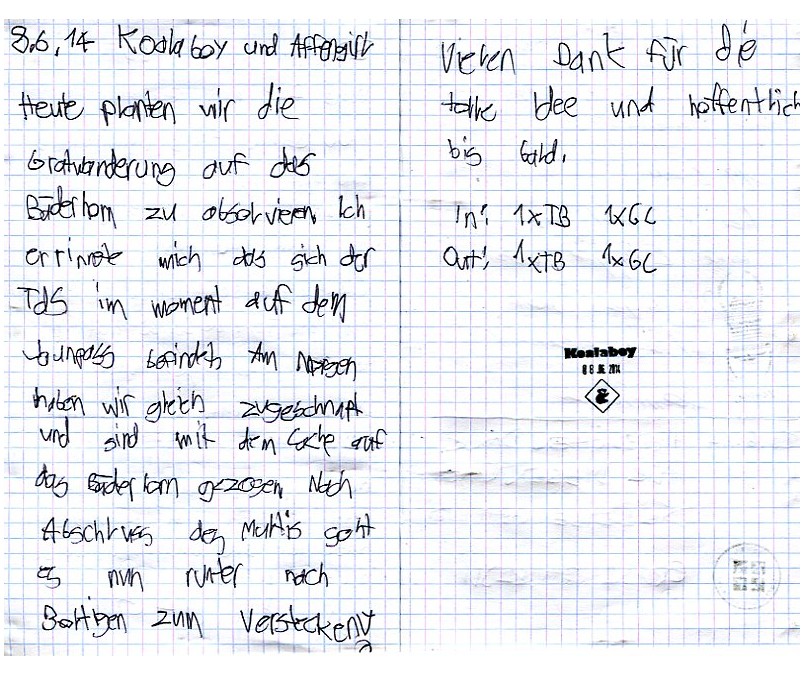 8.6.14 Koalaboy und Affengirl
Heute planten wir die
Gratwanderung auf das
Bäderhorn zu absolvieren. Ich
errinnete mich das sich der
TdS im moment auf dem
befindet. Am Morgen
haben wir gleich zugeschnapt
und sind mit dem Cache auf
das Bäderhorn gezogen. Nach
Abschluss des Multis geht
es nun runter nach
Boltigen zum Verstecken
Vielen Dank für die
tolle Idee und hoffentlich
bis bald.
In: 1xTB 1xGC
Out: 1xTB 1xGC
Koalaboy
08 JE 2014